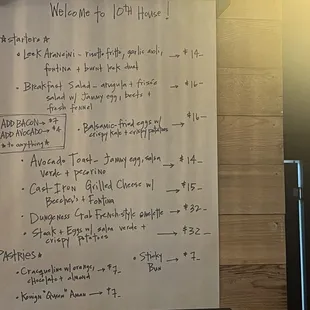 Welcome to 10TH House!
*Starters*
• Leek Arancini - risotto fritto, garlic aioli, → $14-
fontina + burnt leek dust
• Breakfast Salad - arugula + frisée → $16-
salad w/ Jammy egg, beets +
fresh fennel
ADD BACON → $7
ADD AVOCADO → $4
*to anything*
• Balsamic-fried eggs w/ → $16-
crispy kale + crispy potatoes
• Avocado Toast - Jammy egg, salsa → $14-
verde + pecorino
• Cast Iron Grilled Cheese w/ → $15-
Beecher's + Fontina
• Dungeness Crab French-style omelette → $32-
• Steak + Eggs w/ salsa verde + → $32-
crispy potatoes
PASTRIES*
• Cracquelin w/ orange, → $7-
chocolate + almond
• Sticky → $7-
Bun
• Kouign "Queen" Amann → $7-